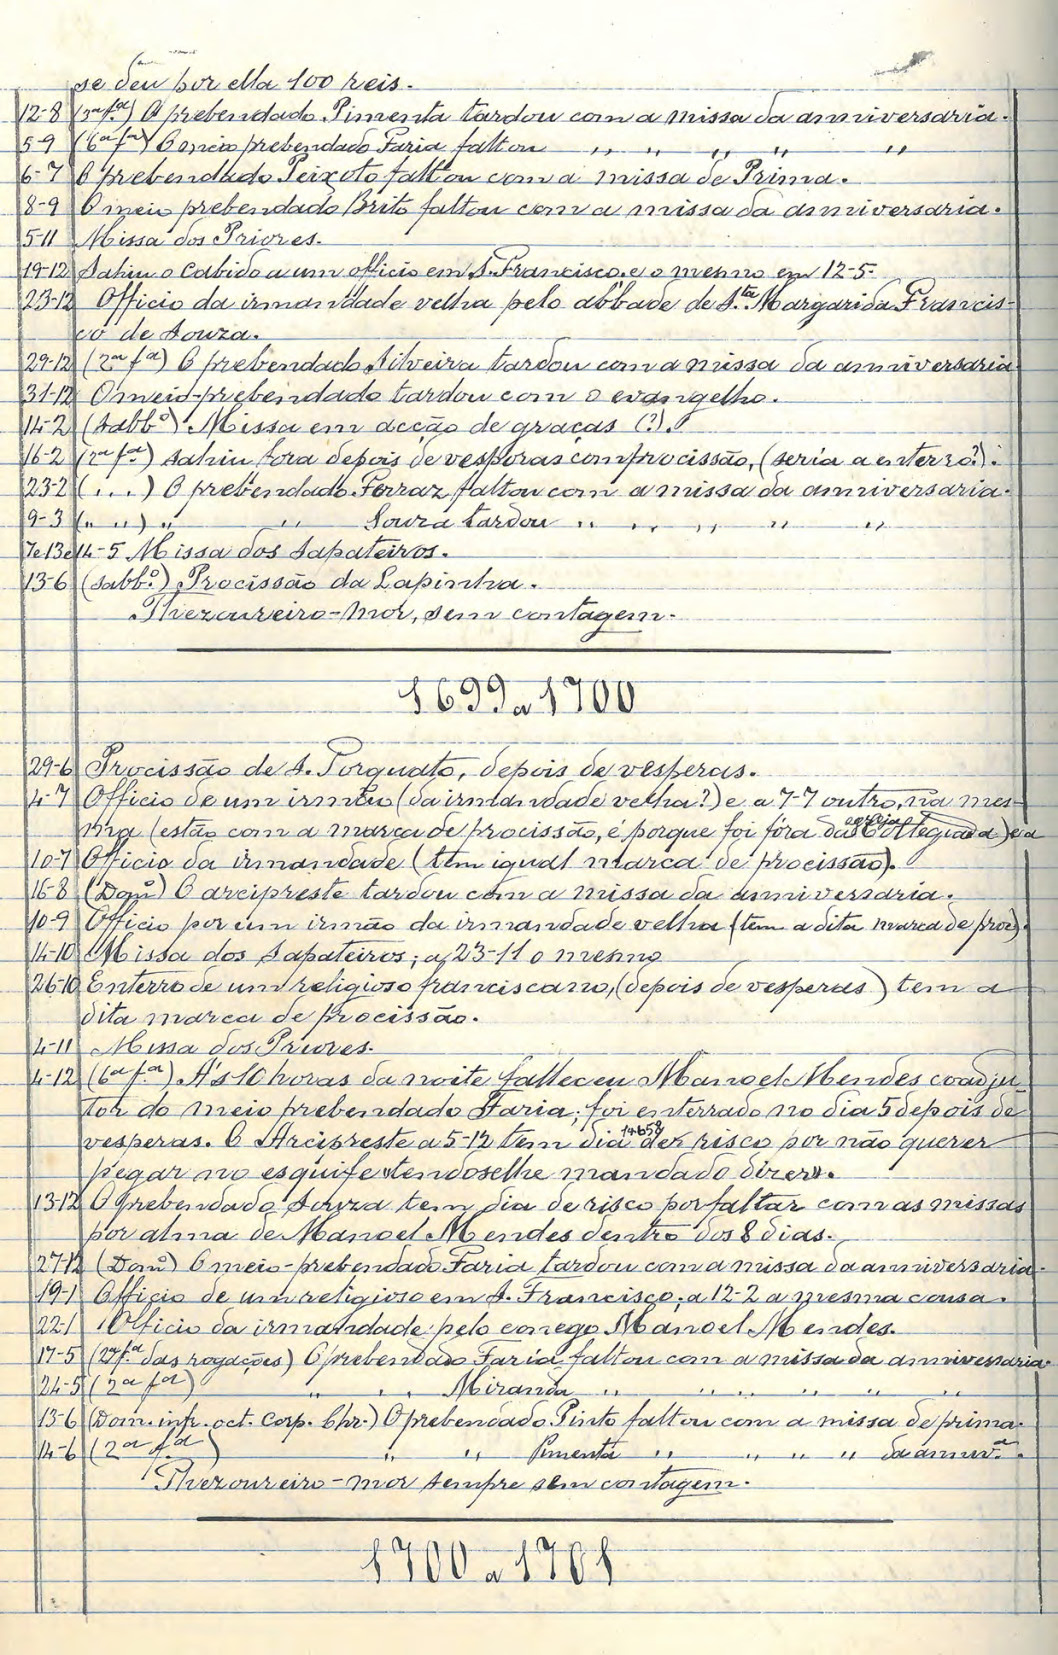 se deu por ella 100 reis.
12-8 (3ª fª) O prebendado Pimenta tardou com a missa da anniversaria.
5-9 (6ª fª) O meio prebendado Faria faltou " " " " "
6-7 O prebendado Peixoto faltou com a missa de Prima.
8-9 O meio prebendado Brito faltou com a missa da anniversaria.
5-11 Missa dos Priores.
19-12 Sahiu o Cabido a um officio em S. Francisco, e o mesmo em 12-5.
23-12 Officio da irmandade velha pelo abbade de Stª Margarida Francis-
co de Souza.
29-12 (2ª fª) O prebendado Silveira tardou com a missa da anniversaria
31-12 O meio-prebendado tardou com o evangelho.
14-2 (Sabbº) Missa em acção de graças (?).
16-2 (2ª fª) Sahiu fora depois de vesporas com procissão, (seria a enterro?).
23-2 (...) O prebendado Ferraz faltou com a missa da anniversaria.
9-3 (" ") " " Souza tardou " " " " "
7 e 13 e 14-5 Missa dos Sapateiros.
13-6 (sabbº) Procissão da Lapinha.
Thezoureiro-mor, sem contagem.
1699 a 1700
29-6 Procissão de S. Torquato, depois de vesperas.
4-7 Officio de um irmão (da irmandade velha?) e a 7-7 outro, na mes-
ma (estão com a marca de procissão, é porque foi fóra da egreja Collegiada) e a
10-7 Officio da irmandade (tem igual marca de procissão).
16-8 (Domº) O arcipreste tardou com a missa da anniversaria.
10-9 Officio por um irmão da irmandade velha (tem a dita marca de proc).
14-10 Missa dos Sapateiros; a 23-11 o mesmo
26-10 Enterro de um religioso franciscano, (depois de vesperas) tem a
dita marca de procissão.
4-11 Missa dos Priores.
4-12 (6ª fª) A's 10 horas da noite falleceu Manoel Mendes coadju-
tor do meio prebendado Faria; foi enterrado no dia 5 depois de
vesperas. O Arcipreste a 5-12 tem dia de risco por não querer
pegar no esquife "tendoselhe mandado dizer".
13-12 O prebendado Souza tem dia de risco por faltar com as missas
por alma de Manoel Mendes dentro dos 8 dias.
27-12 (Domº) O meio-prebendado Faria tardou com a missa da anniversaria.
19-1 Officio de um religioso em S. Francisco; a 12-2 a mesma cousa.
22-1 Officio da irmandade pelo conego Manoel Mendes.
17-5 (2ª fª das rogações) O prebendado Faria faltou com a missa da anniversaria
24-5 (2ª fª) " " " Miranda " " " " " "
13-6 (Dom. inf. oct. Corp. Chr.) O prebendado Pinto faltou com a missa de prima.
14-6 (2ª fª) " " Pimenta " " " " da annivª.
Thezoureiro-mor sempre sem contagem.
1700 a 1701